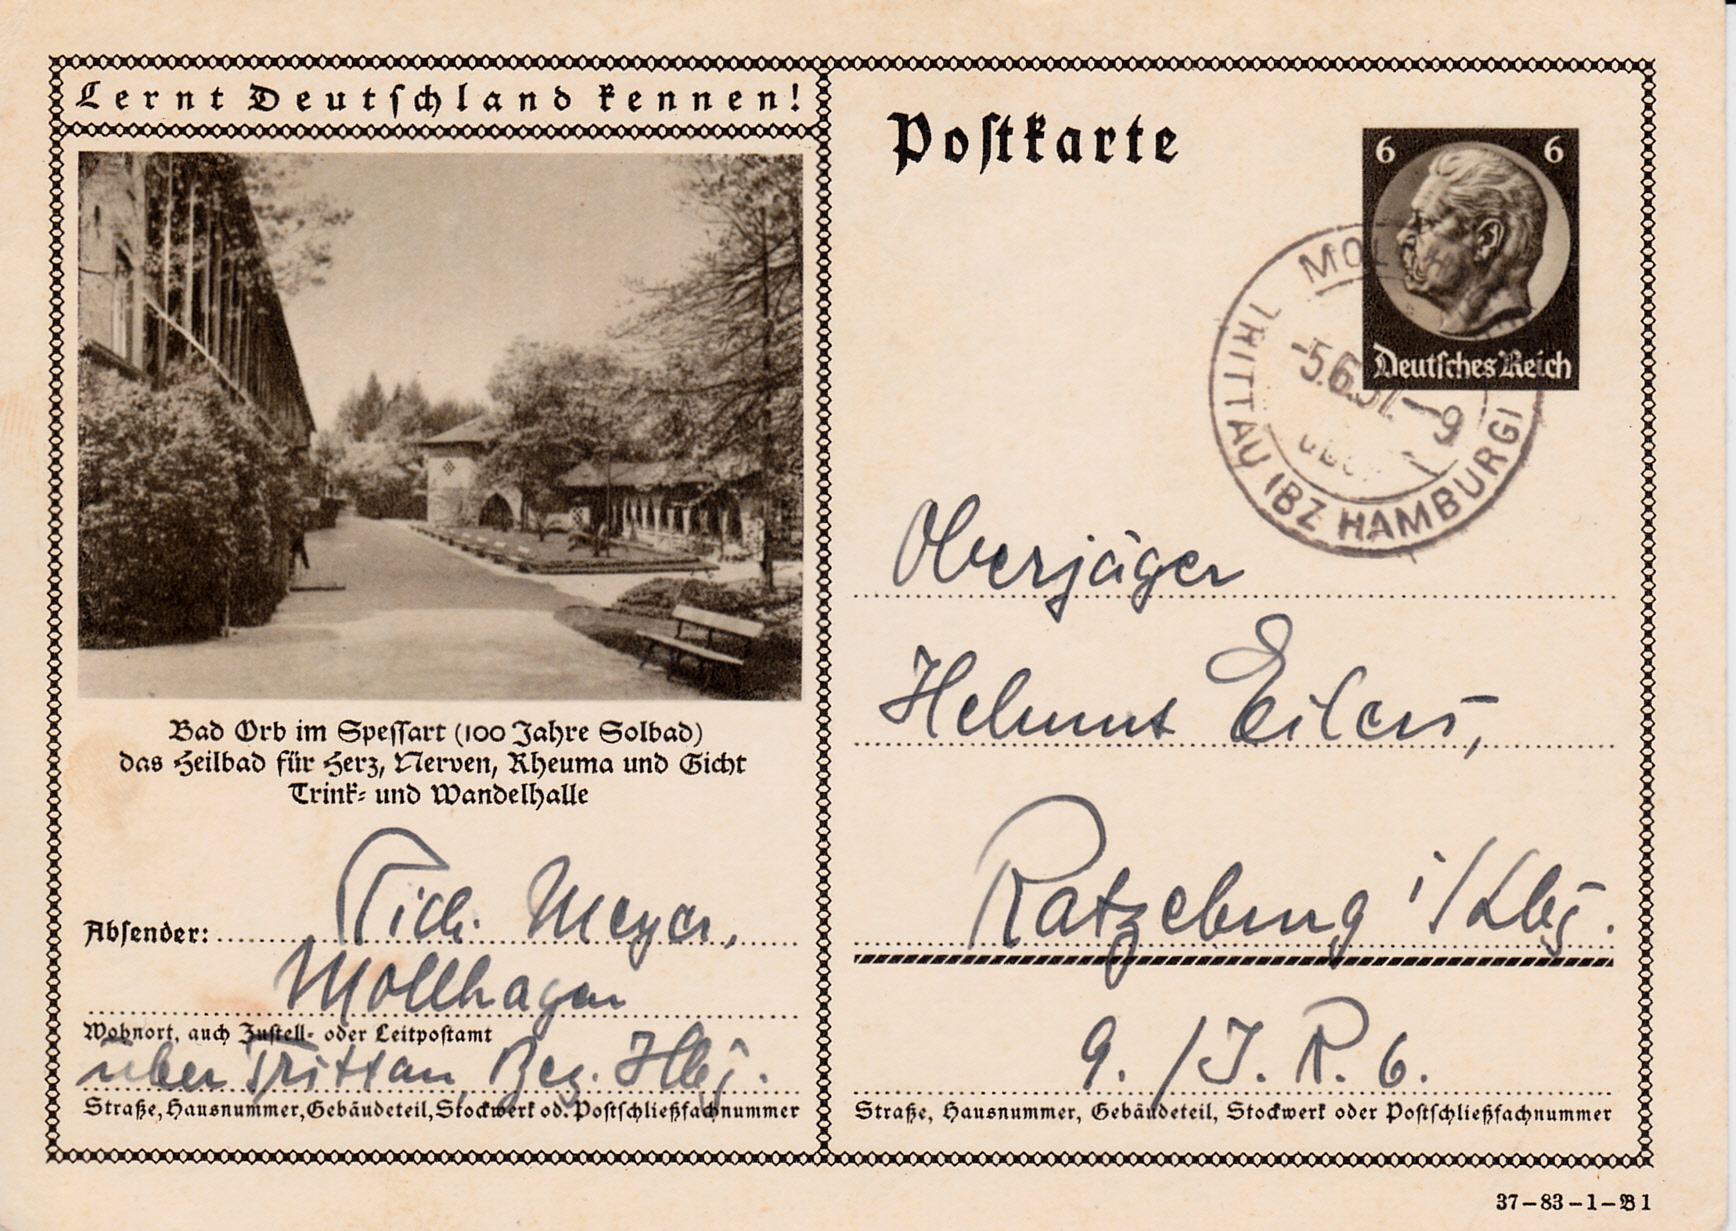 Lernt Deutschland kennen!
Bad Orb im Spessart (100 Jahre Solbad)
das Heilbad für Herz, Nerven, Rheuma und Gicht
Trink- und Wandelhalle
Absender: Rich. Meyer,
Mollhagen
Wohnort, auch Zustell- oder Leitpostamt
über Trittau, Bez. Hbg.
Straße, Hausnummer, Gebäudeteil, Stockwerk od. Postschließfachnummer
Postkarte
6 6
Deutsches Reich
TRITTAU (BZ HAMBURG)
-5.6.37.-9
Oberjäger
Helmut Eilers,
Ratzeburg i/Lbg.
9. / J. R. 6.
Straße, Hausnummer, Gebäudeteil, Stockwerk oder Postschließfachnummer
37-83-1-B 1